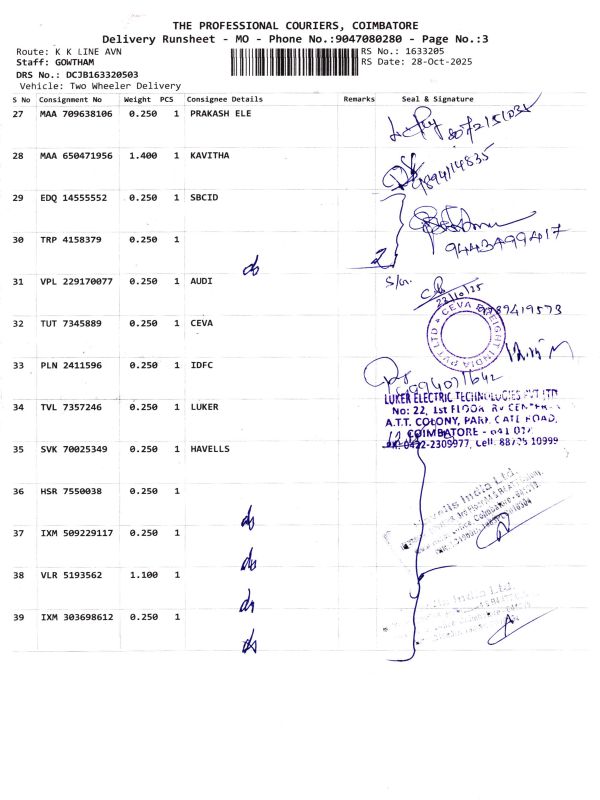 THE PROFESSIONAL COURIERS, COIMBATORE
Delivery Runsheet - MO - Phone No.:9047080280 - Page No.:3
Route: K K LINE AVN RS No.: 1633205
Staff: GOWTHAM RS Date: 28-Oct-2025
DRS No.: DCJB163320503
Vehicle: Two Wheeler Delivery
S No Consignment No Weight PCS Consignee Details Remarks Seal & Signature
27 MAA 709638106 0.250 1 PRAKASH ELE
28 MAA 650471956 1.400 1 KAVITHA
9894114835
29 EDQ 14555552 0.250 1 SBCID
30 TRP 4158379 0.250 1
9443499417
31 VPL 229170077 0.250 1 AUDI
32 TUT 7345889 0.250 1 CEVA
CEVA FREIGHT INDIA PVT LTD
33 PLN 2411596 0.250 1 IDFC
34 TVL 7357246 0.250 1 LUKER
LUKER ELECTRIC TECHNOLOGIES PVT LTD
No: 22, 1st FLOOR, RV CENTRE
A.T.T. COLONY, PARK GATE ROAD,
COIMBATORE - 641 017
0422-2309977, Cell: 88705 10999
35 SVK 70025349 0.250 1 HAVELLS
36 HSR 7550038 0.250 1
Havells India Ltd.
37 IXM 509229117 0.250 1
38 VLR 5193562 1.100 1
39 IXM 303698612 0.250 1
India Ltd.